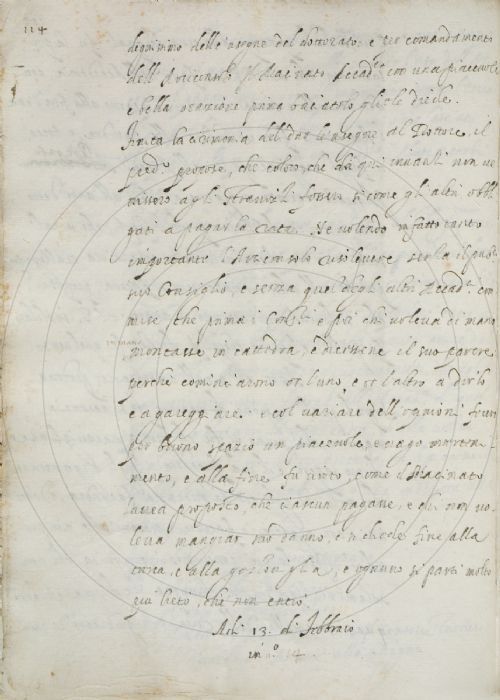 114
degnissimo delle insegne del Dottorato, e per comandamento
dell'Arciconsolo il Macinato Accad.co con una piacevole
e bella orazione prima gliele diede.
finita la cirimonia del dar le insegne al Dottore il
propose, che coloro, che da qui innanzi non ve
nissero agli Stravizzi fossero sì come gli altri obbli
gati a pagar la rata. Ne volendo in fatto tanto
importante l'Arciconsolo risolvere per la il pub.co
suo Consiglio, e senza quel degli altri Accad.ci com
mise, che prima i Cons.ri e poi chi voleva di mano
in mano
montasse in cattedra, e dicessene il suo parere
perchè cominciarono or l'uno, e or l'altro a dirlo
e a gareggiare, e col variare dell'opinioni fecero
per buono spazio un piacevole, e vago
mento, e alla fine fu vinto, come il Macinato
aveva proposto, che ciascun pagasse, e chi non vo
leva mangiar suo danno, e si diede fine alla
cena, e alla gozzoviglia, e ognuno si partì molto
più lieto, che non entrò
Adi 13. di Febbraio
in n.o 14